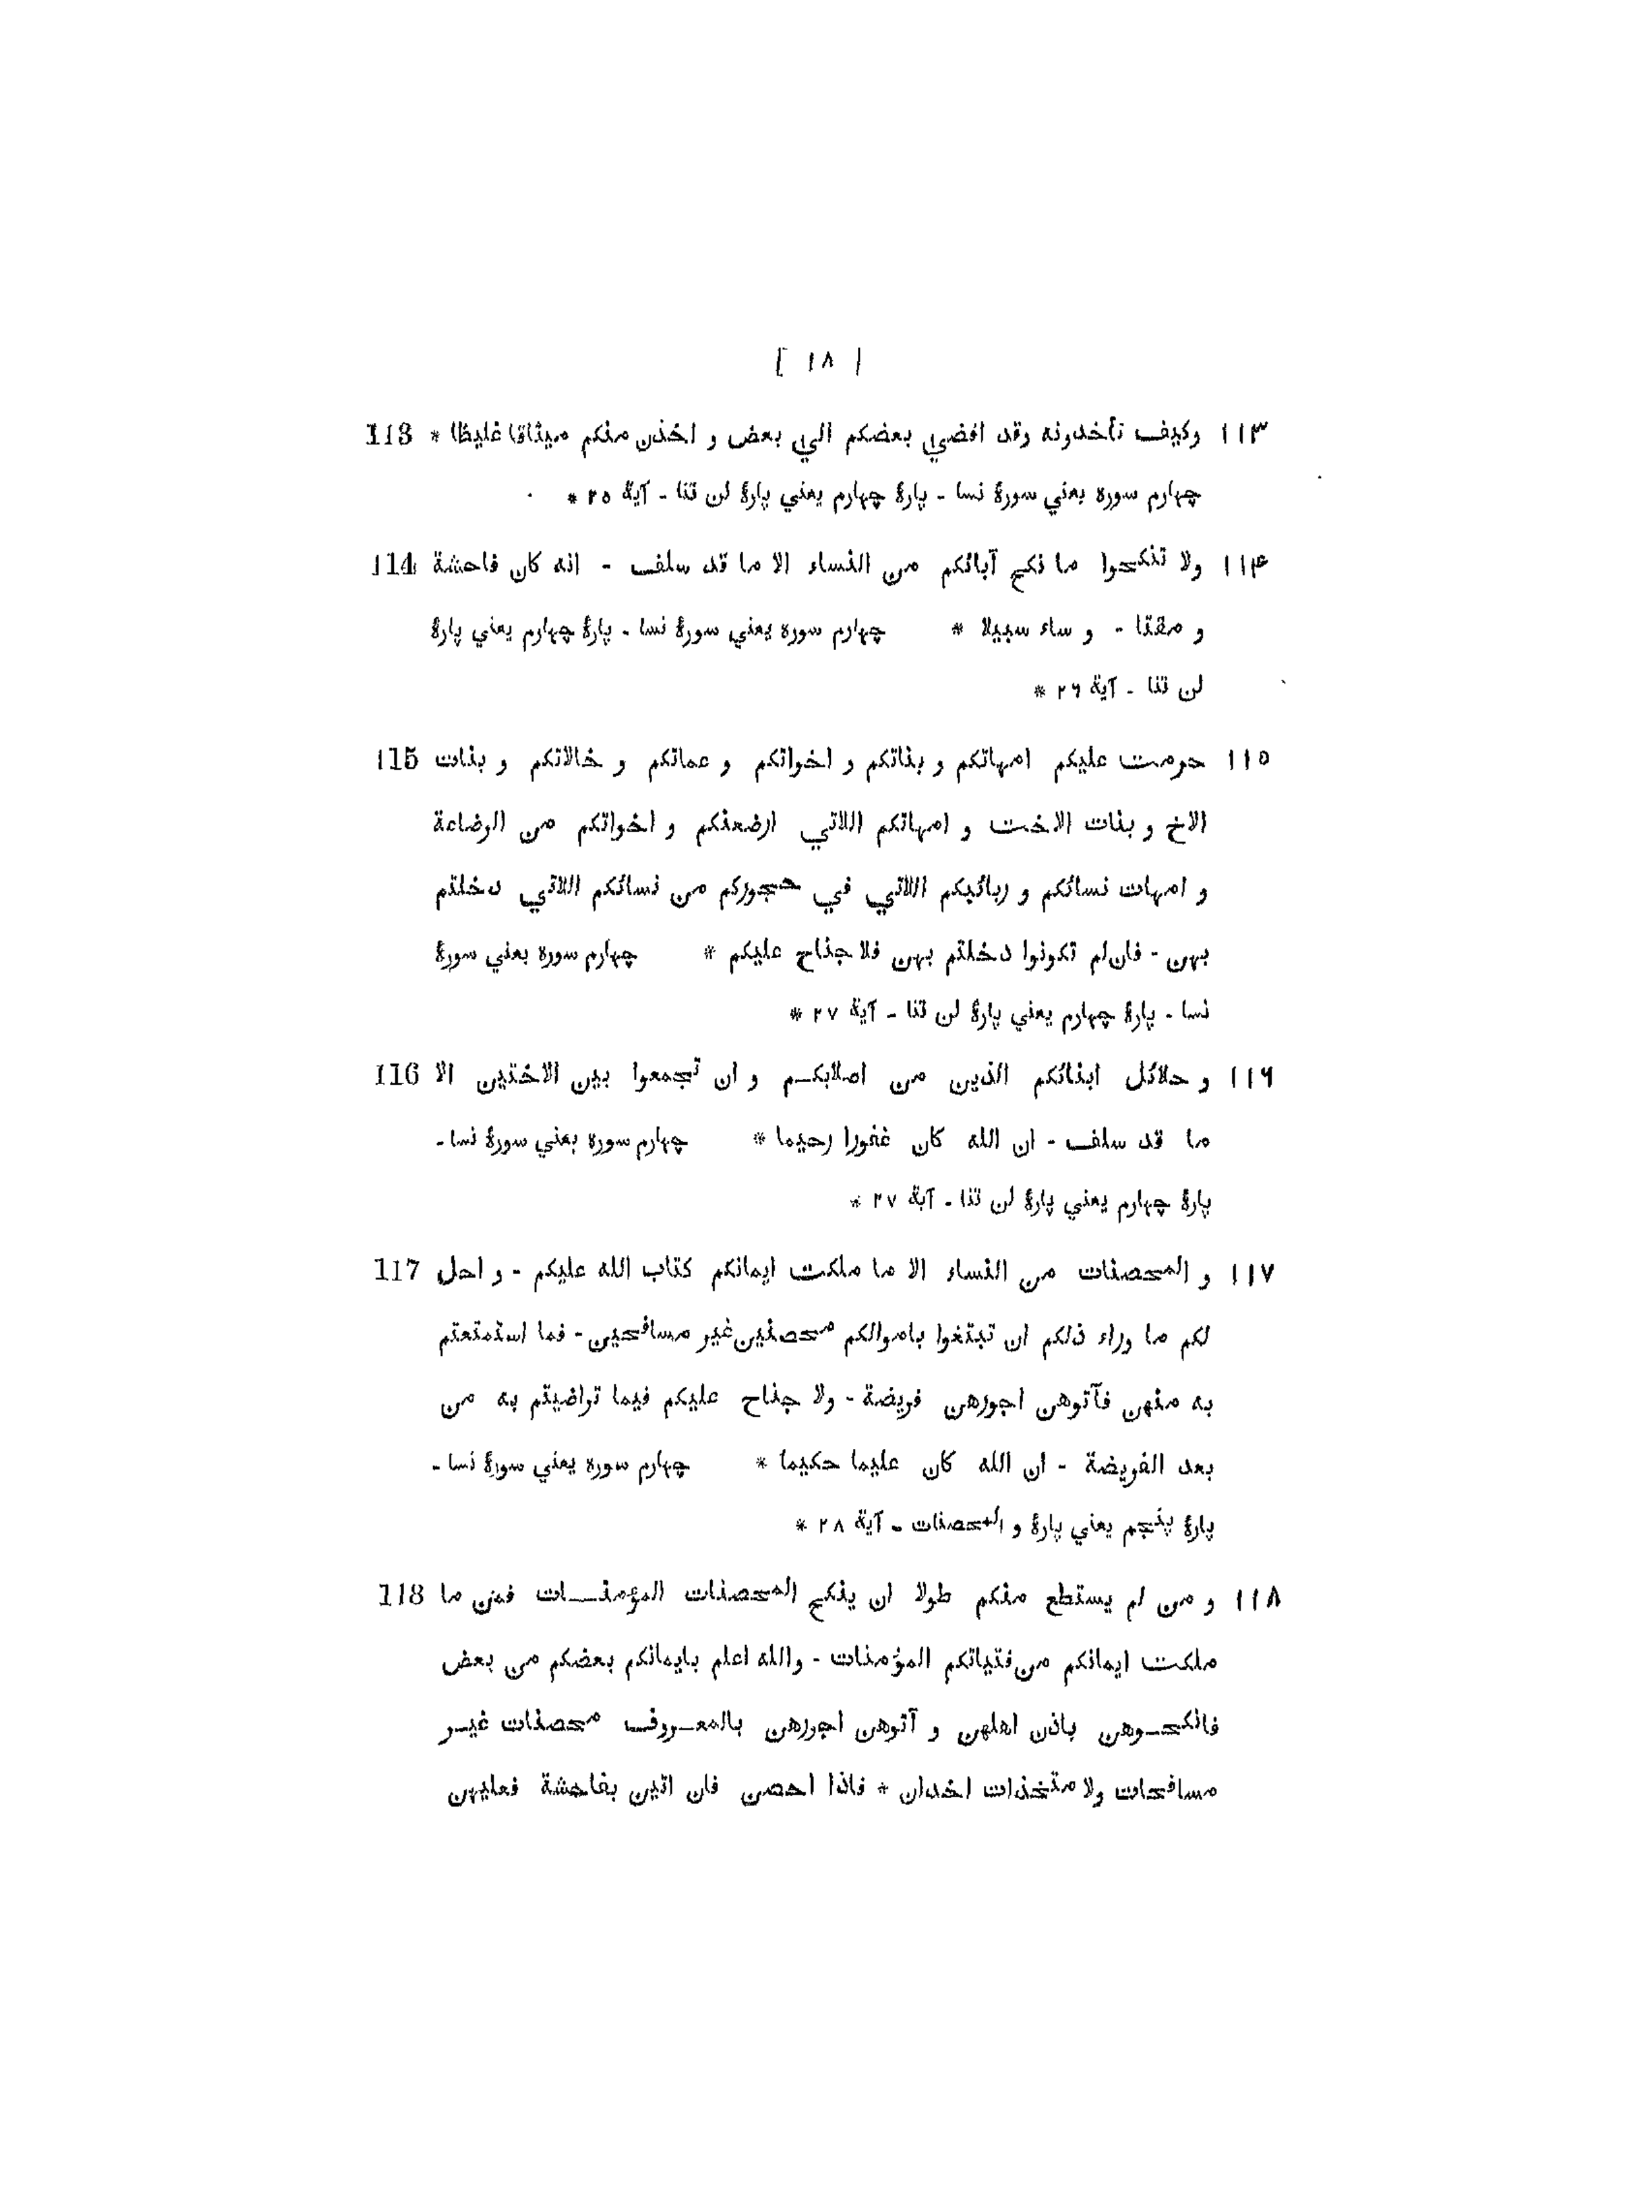 [ ١٨ ]
١١٣ وكيف تأخذونه وقد افضي بعضكم الي بعض و اخذن منكم ميثاقا غليظا * 113
چهارم سوره يعني سورهٔ نسا - پارهٔ چهارم يعني پارهٔ لن تنا - آيهٔ ٢٥ *
١١۴ ولا تنكحوا ما نكح آبائكم من النساء الا ما قد سلف - انه كان فاحشة 114
و مقتا - و ساء سبيلا * چهارم سوره يعني سورهٔ نسا - پارهٔ چهارم يعني پارهٔ
لن تنا - آيهٔ ٢٦ *
١١٥ حرمت عليكم امهاتكم و بناتكم و اخواتكم و عماتكم و خالاتكم و بنات 115
الاخ و بنات الاخت و امهاتكم اللاتي ارضعنكم و اخواتكم من الرضاعة
و امهات نسائكم و ربائبكم اللاتي في حجوركم من نسائكم اللاتي دخلتم
بهن - فان لم تكونوا دخلتم بهن فلا جناح عليكم * چهارم سوره يعني سورهٔ
نسا - پارهٔ چهارم يعني پارهٔ لن تنا - آيهٔ ٢٧ *
١١٦ و حلائل ابنائكم الذين من اصلابكم و ان تجمعوا بين الاختين الا 116
ما قد سلف - ان الله كان غفورا رحيما * چهارم سوره يعني سورهٔ نسا -
پارهٔ چهارم يعني پارهٔ لن تنا - آيهٔ ٢٧ *
١١٧ و المحصنات من النساء الا ما ملكت ايمانكم كتاب الله عليكم - و احل 117
لكم ما وراء ذلكم ان تبتغوا باموالكم محصنين غير مسافحين - فما استمتعتم
به منهن فآتوهن اجورهن فريضة - ولا جناح عليكم فيما تراضيتم به من
بعد الفريضة - ان الله كان عليما حكيما * چهارم سوره يعني سورهٔ نسا -
پارهٔ پنجم يعني پارهٔ و المحصنات - آيهٔ ٢٨ *
١١٨ و من لم يستطع منكم طولا ان ينكح المحصنات المؤمنــات فمن ما 118
ملكت ايمانكم من فتياتكم المؤمنات - والله اعلم بايمانكم بعضكم من بعض
فانكحــوهن باذن اهلهن و آتوهن اجورهن بالمعــروف محصنات غيــر
مسافحات ولا متخذات اخدان * فاذا احصن فان اتين بفاحشة فعليهن